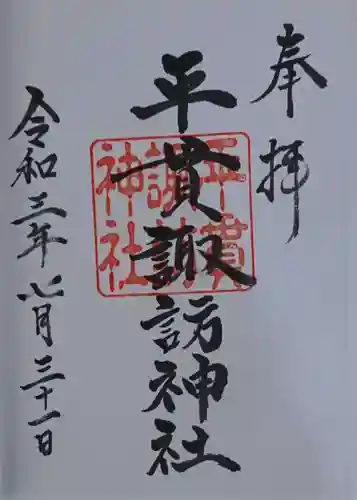 奉拝
平貫諏訪神社
平貫
諏訪
神社
令和三年八月三十一日